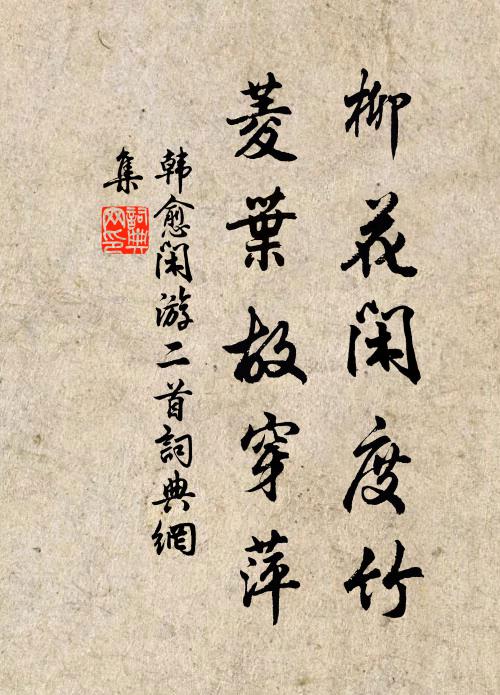 柳花閑度竹
菱葉故穿萍
韩愈閑游二首詞典網
集
詞典
网印